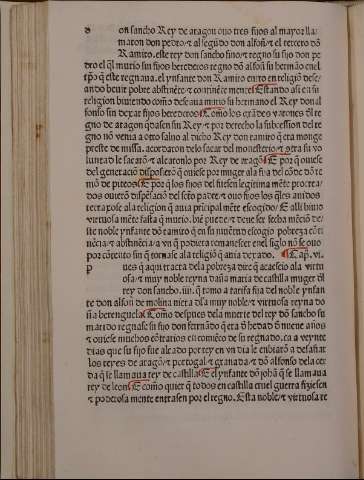 don sancho Rey de aragon ouo tres fijos al mayor lla
maron don pedro ⁊ al segũdo don alfoñ ⁊ el tercero dõ
Ramiro. este rey don sancho fino ⁊ regno su fijo don pe
dro el q̃l murio sin fijos herederos regno dõ alfoñ su hermão en el
tpõ q̃ este regnaua. el ynfante don Ramiro entro en religiõ dese
ando beuir pobre abstinẽte ⁊ continẽte mẽte Estando asi en su
religion biuiendo como deseaua murio su hermano el Rey don al
fonso sin dexar fijos herederos Como los grãdes varones dl re
gno de aragon q̃dasen sin Rey ⁊ por derecho la subcession del re
gno nõ venia a otro saluo al dicho Rey don ramiro q̃ era monge
preste de missa. acordaron delo sacar del monesterio ⁊ cõtra su vo
luntad le sacarõ ⁊ alcaronlo por Rey de aragõ E por q̃ ouiese
del generaciõ dispẽsarõ q̃ ouiese por muger ala fija del cõde dõ re
mõ de piteos E por q̃ los fijos del fuesen legitima mẽte procrea
dos ouierõ dispẽsaciõ del sctõ padre ⁊ ouo fijos los q̃les auidos
torno se ala religion q̃ auia prĩcipal mẽte escogido E alli biuio
virtuosa mẽte fasta q̃ murio. biẽ puede ⁊ deue ser fecha mẽciõ de
ste noble ynfante dõ ramiro q̃ en su mãcebo escogio pobreza cõti
nẽcia ⁊ abstinẽcia ⁊ avn q̃ podiera remanescer enel siglo nõ se ouo
por cõtento sin q̃ tornase ala religiõ q̃ auia dexado. Cap̃. vi.
Pues q̃ aqui tracta dela pobreza dire q̃ acaescio ala virtu
osa ⁊ muy noble reyna daña maria de castilla muger dl
rey don sancho. iiij. q̃ tomo a tarifa fija del noble ynfan
te don alfoñ de molina nieta dla muy noble ⁊ virtuosa reyna do
ña berenguela Como despues dela muerte del rey dõ sancho su
marido regnase su fijo don ferrãdo q̃ era d̃ hedad d̃ nueue anos
⁊ ouiese muchos cõtrarios en comiẽço de su regnado. ca a veynte
dias que su fijo fue alçado por rey en vn dia le enbiarõ a desafiar
los reyes de aragõ ⁊ portogal ⁊ granada ⁊ dõ alfonso dela cer
da q̃ se llamaua rey de castilla E el ynfante dõ johã q̃ se llamaua
rey de leon E como quier q̃ todos en castilla cruel guerra fiziesen
⁊ poderosa mente entrasen por el regno. Esta noble ⁊ virtuosa re